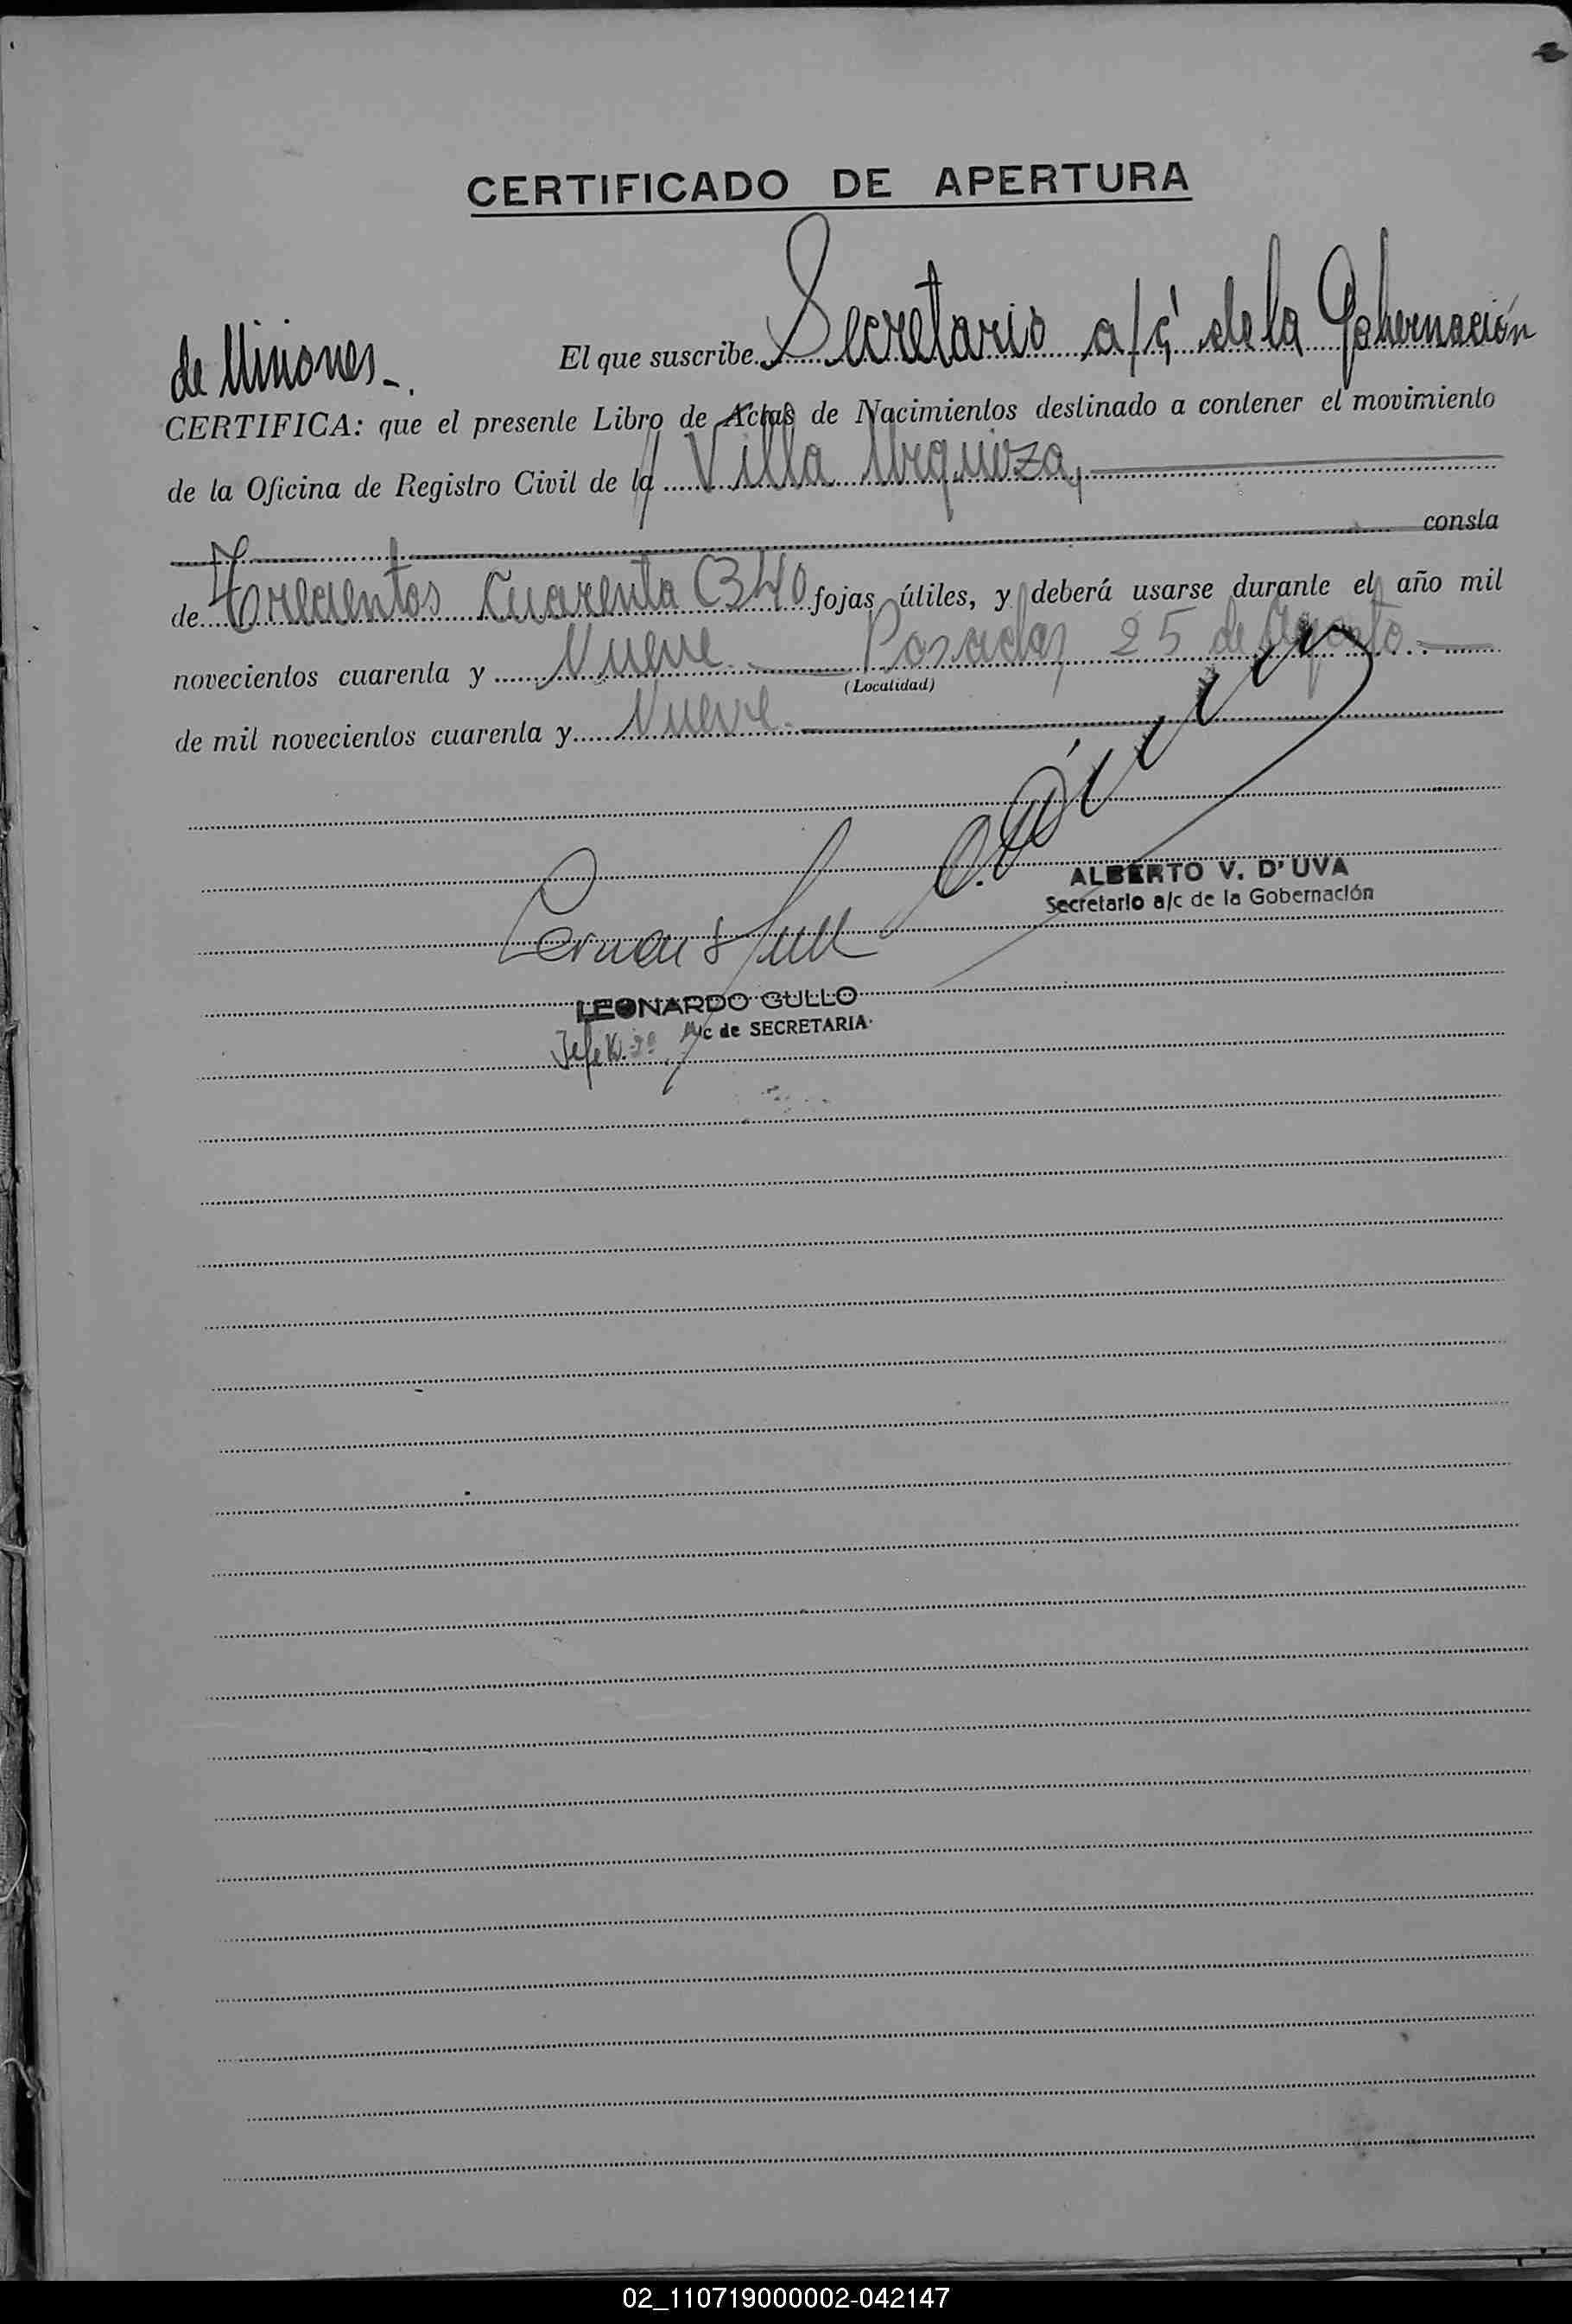 CERTIFICADO DE APERTURA
El que suscribe Secretario a/c de la Gobernación
de Misiones.
CERTIFICA: que el presente Libro de Actas de Nacimientos destinado a contener el movimiento
de la Oficina de Registro Civil de la Villa Urquiza,
consta
de Trecientos Cuarenta (340 fojas útiles, y deberá usarse durante el año mil
novecientos cuarenta y Nueve. Posadas, 25 de Agosto
(Localidad)
de mil novecientos cuarenta y Nueve.
ALBERTO V. D'UVA
Secretario a/c de la Gobernación
LEONARDO GULLO
Jefe A/c de SECRETARIA
02_110719000002-042147